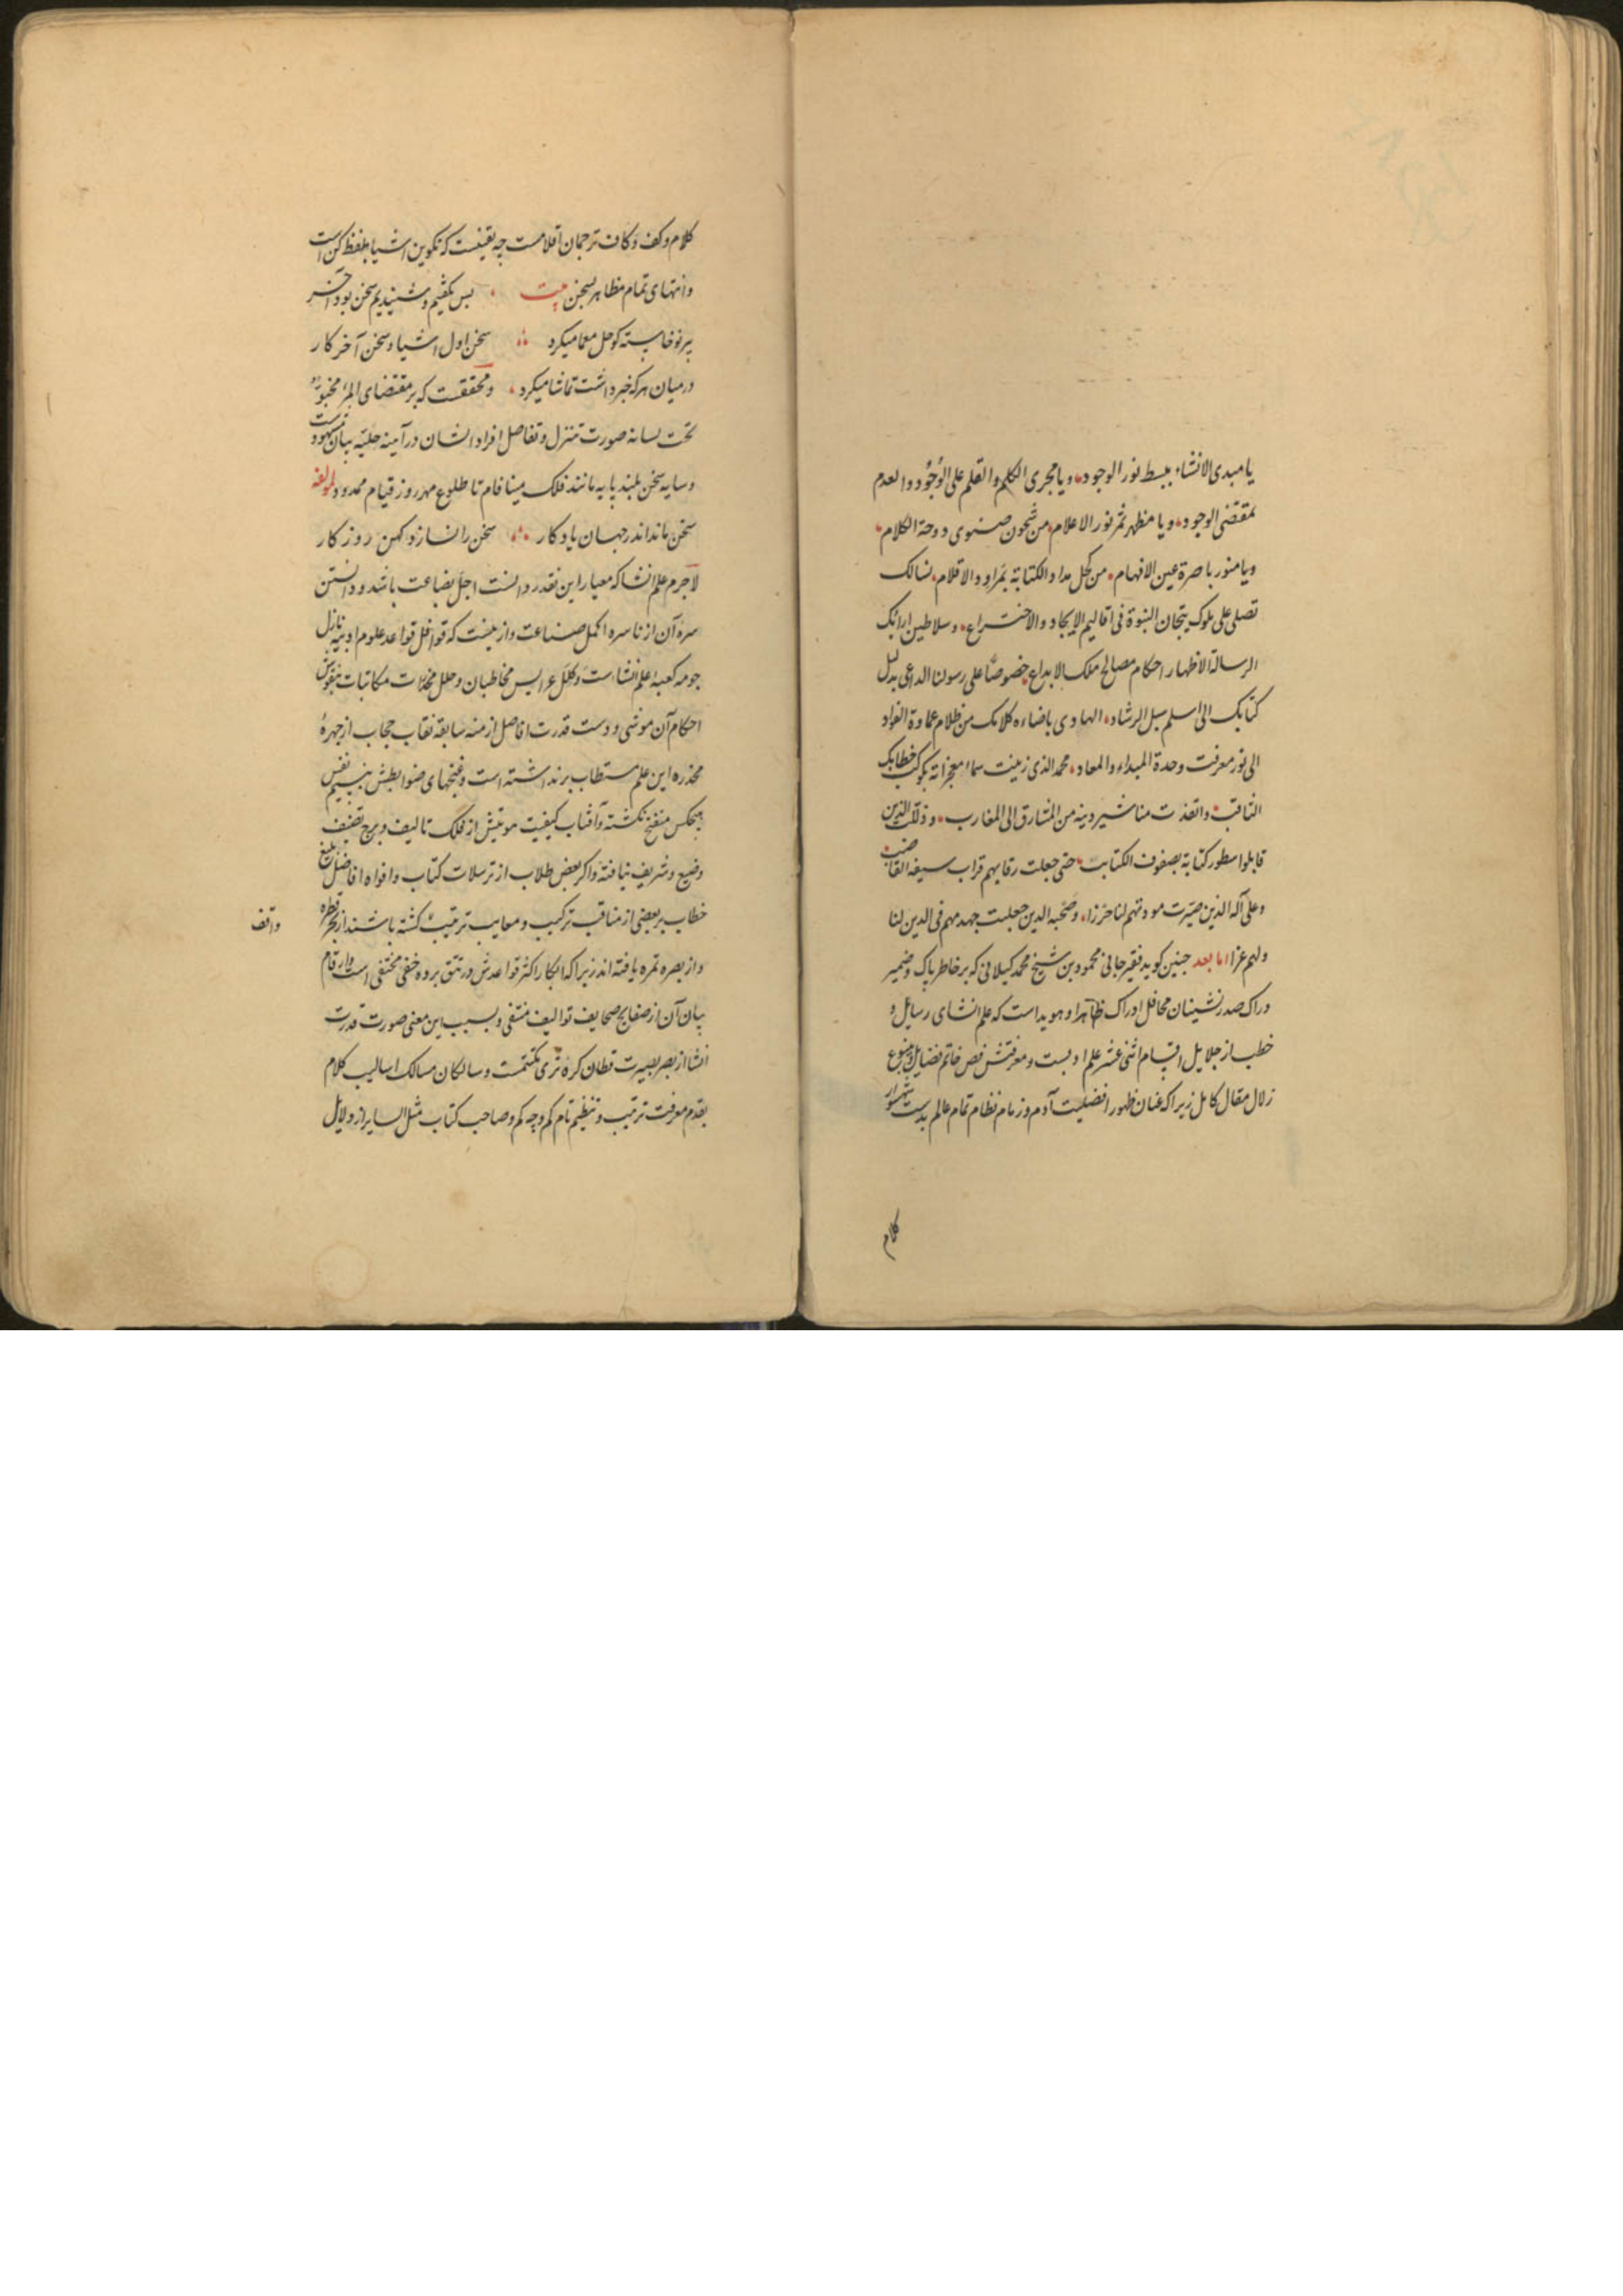 یا مبدی الانشاء ببسط نور الوجود و یا مجری الکلم والقلم علی الوجود والعدم
بمقتضی الوجود و یا مظهر ثمر نور الاعلام من غصون صنوی دوحة الکلام
و یا منور باصرة عین الافهام من کحل مداد الکتابة بمراود الاقلام نسالک
تصلی علی ملوک تیجان النبوة فی اقالیم الایجاد والاختراع وسلاطین ارائک
الرسالة لاظهار احکام مصالح ملک الابداع خصوصا علی رسولنا الداعی بدلیل
کتابک الی اسلم سبل الرشاد الهادی باضاءه کلامک من ظلام عماوة الفواد
الی نور معرفت وحدة المبداء والمعاد محمد الذی زینت سماء معجزاته بکوکب خطابک
الثاقب وانفذت مناشیر دینه من المشارق الی المغارب و ذللت الذین
قابلوا سطور کتابة بصفوف الکتایب حتی جعلت رقابهم قراب سیفه القاضب
و علی آله الذین صیرت مودتهم لنا حرزا و صحبه الذین جعلت جهدهم فی الدین لنا
ولهم عزا اما بعد جنین کوید فقیر جانی محمود بن شیخ محمد کیلانی که بر خاطر پاک و ضمیر
دراک صدر نشینان محافل ادراک ظاهرا و هویداست که علم انشای رسایل و
خطب از جلایل اقسام اثنی عشر علم ادبست و معرفتش فص خاتم فضایل و ینبوع
زلال مقال کامل زیرا که عنان ظهور افضلیت آدم و زمام نظام تمام عالم بدست شهسوار
کلام
کلام و کف و کاف ترجمان اقلامست چه یقینست که تکوین اشیا بلفظ کن است
و انتهای تمام مظاهر بسخن بیت بس بکفتیم و شنیدیم سخن بود آخر
پر نوخاسته کو حل معما میکرد سخن اول اشیا و سخن آخر کار
در میان هر که خبر داشت تماشا میکرد و محققست که بر مقتضای المرء مخبوء
تحت لسانه صورت تنزل و تفاضل افراد انسان در آینه حلیه بیان مشهود است
و سایه سخن بلند پایه مانند فلک مینا فام تا طلوع مهر روز قیام ممدود لمولفه
سخن ماند اندر جهان یادکار سخن را نسازد کهن روزکار
لاجرم علم انشا که معیار این نقد در دانست اجل بضاعت باشد و دانستن
سره آن از ناسره اکمل صناعت و ازینست که قوافل قواعد علوم ادبیه نازل
حومه کعبه علم انشاست و کلل عرایس مخاطبان و حلل مخدرات مکاتبات بنقوش
احکام آن موشی و دست قدرت افاضل ازمنه سابقه نقاب حجاب از چهرهٔ
مخدره این علم مستطاب برنداشته است و غنچهای ضوابطش بنسیم نفس
هیچکس منفتح نکشته و آفتاب کیفیت موتیش از فلک تالیف و برج تصنیف
وضیع و شریف نتافته و اکر بعض طلاب از ترسلات کتاب و افواه افاضل بلیغ
خطاب بر بعضی از مناقب ترکیب و معایب ترتیب کشته باشند از بحر قطره
واقف
و از بصره تمره یافته‌اند زیرا که ابکار اکثر قواعدش در تتق برده خفی مختفی است و ارقام
بیان آن از صفایح صحایف توالیف منتفی و بسبب این معنی صورت قدرت
انشا از بصر بصیرت قطان کرهٔ ثری مکتتمست و سالکان مسالک اسالیب کلام
بقدم معرفت ترتیب و تنظیم تام کم و چه کم و صاحب کتاب مثل السایر از دلایل